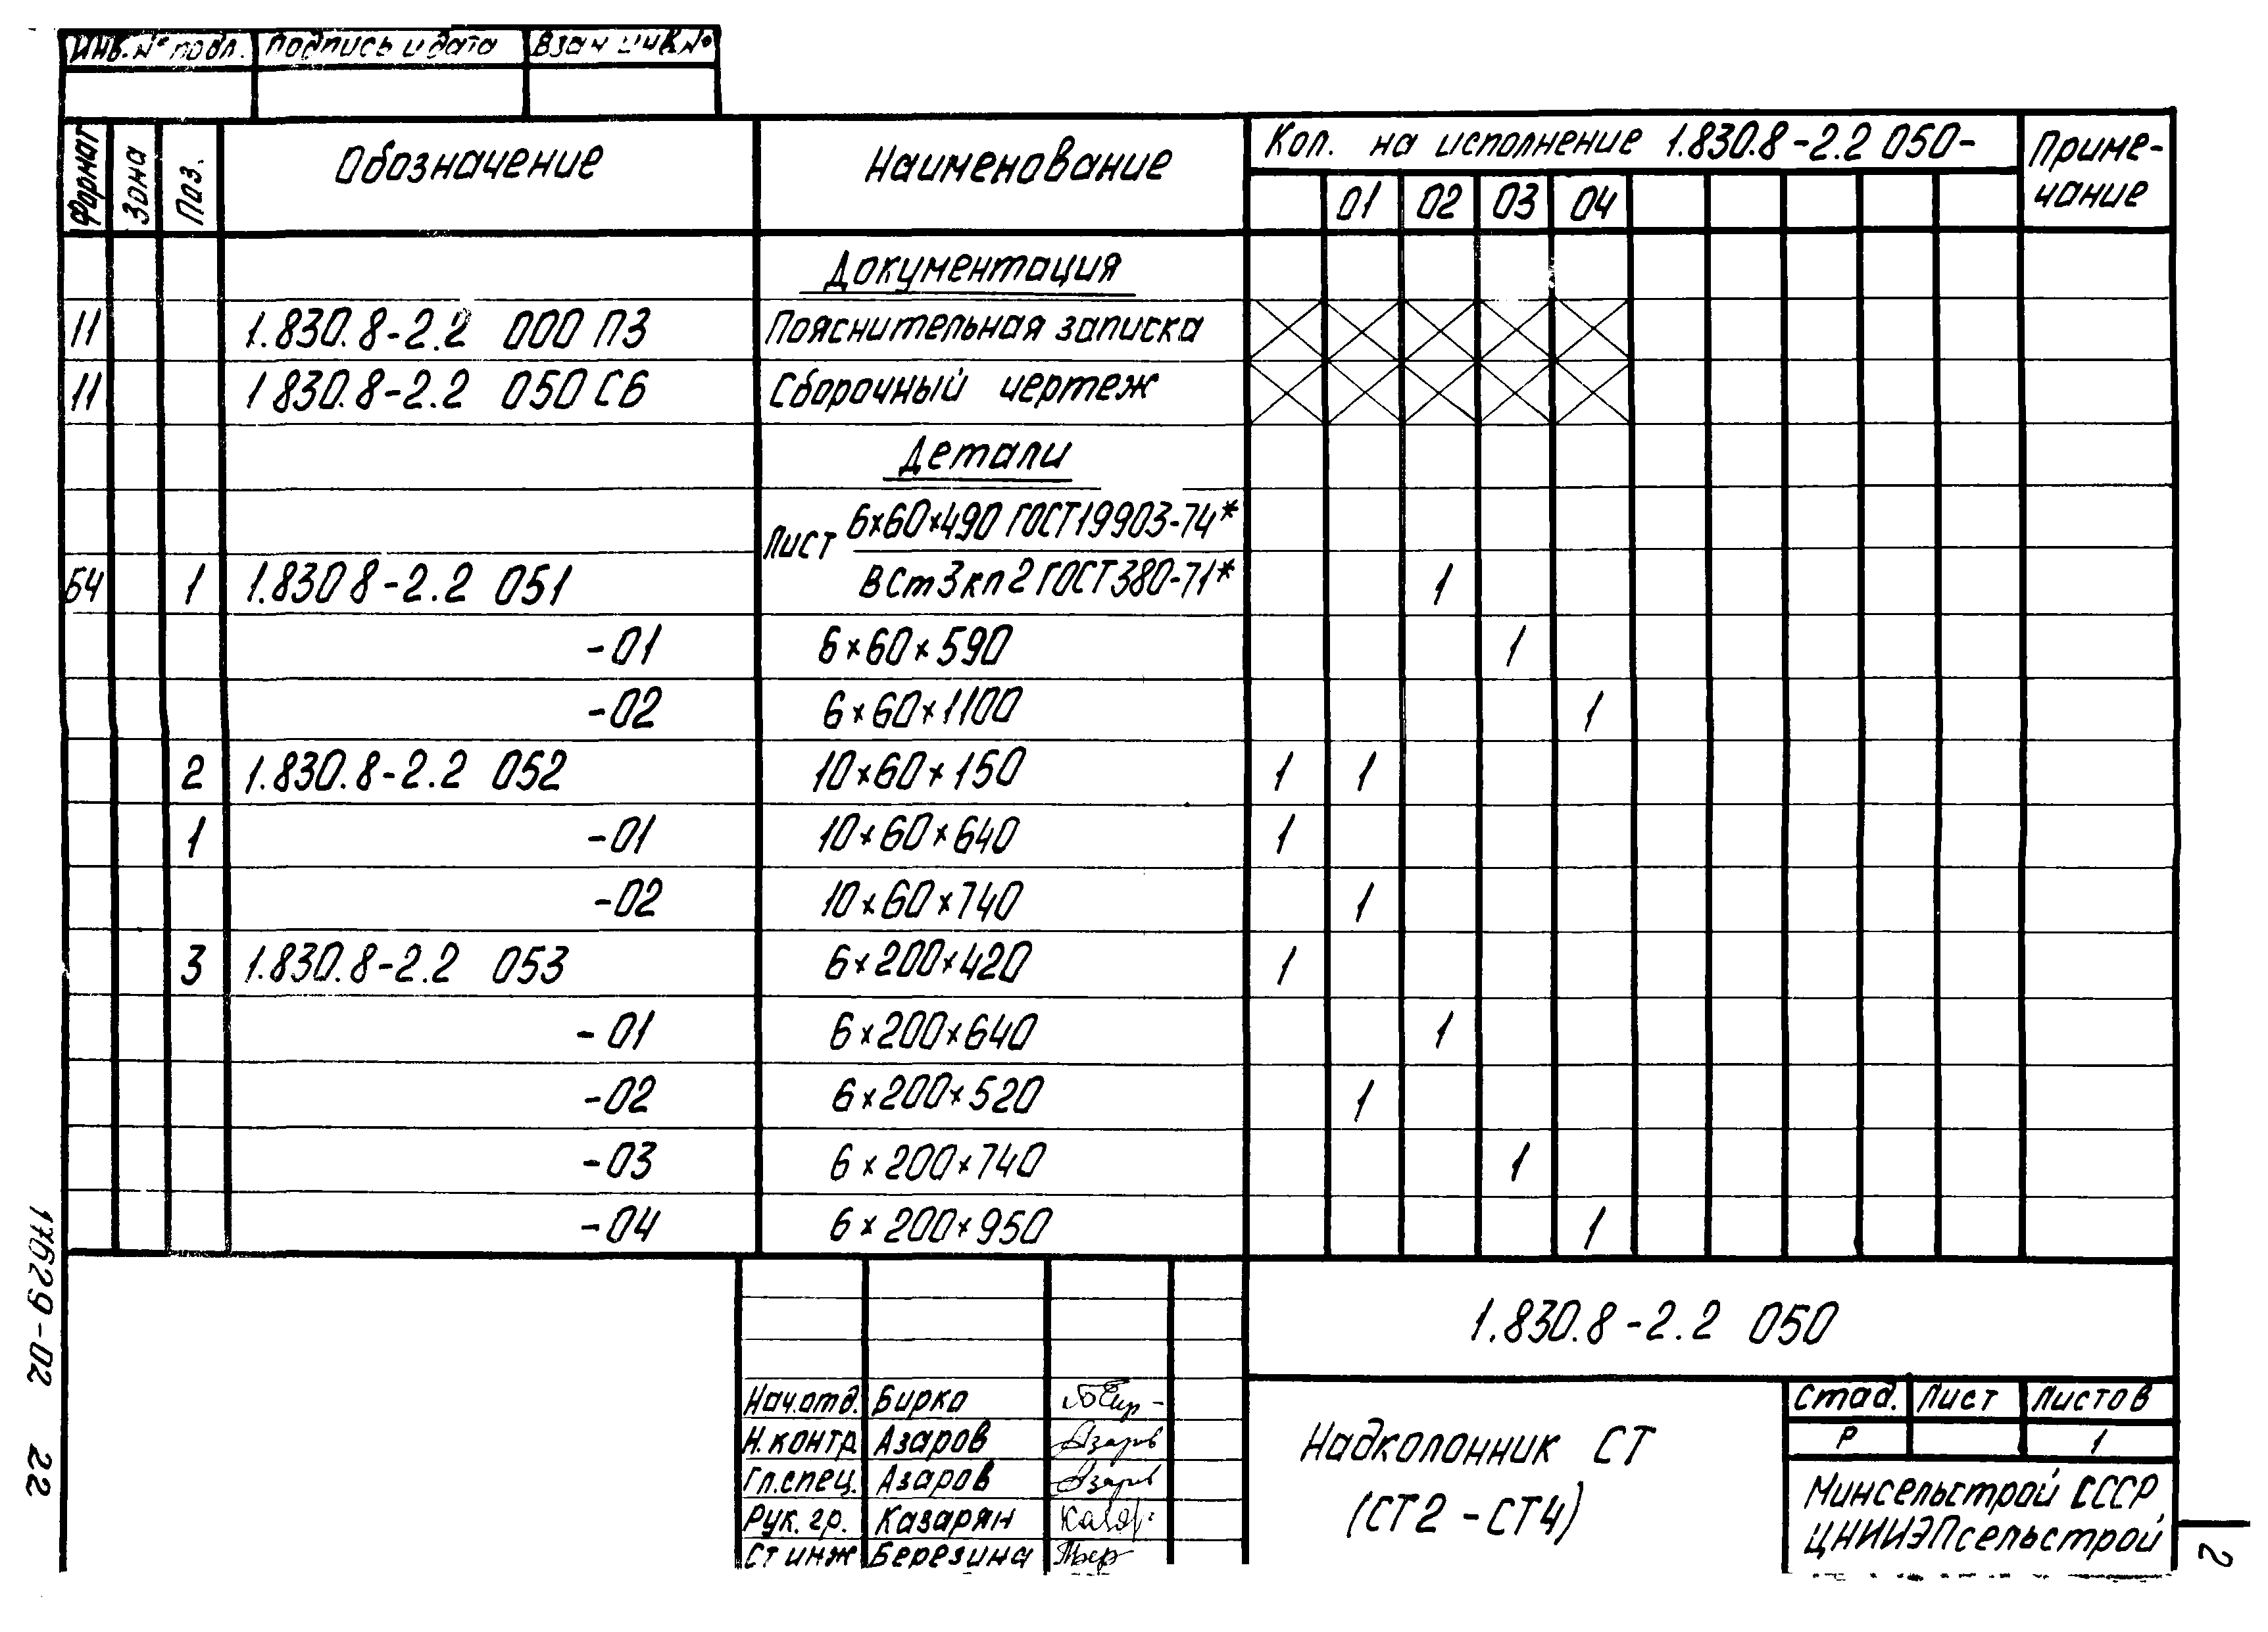 Инв. № подл. Подпись и дата Взам инв №
Формат Зона Поз. Обозначение Наименование Кол. на исполнение 1.830.8-2.2 050- Приме-
чание
01 02 03 04
Документация
11 1.830.8-2.2 000 ПЗ Пояснительная записка
11 1 830.8-2.2 050 СБ Сборочный чертеж
Детали
Лист 6×60×490 ГОСТ 19903-74*
БЧ 1 1.830 8-2.2 051 ВСт3кп2 ГОСТ 380-71* 1
-01 6×60×590 1
-02 6×60×1100 1
2 1.830.8-2.2 052 10×60×150 1 1
1 -01 10×60×640 1
-02 10×60×740 1
3 1.830.8-2.2 053 6×200×420 1
-01 6×200×640 1
-02 6×200×520 1
-03 6×200×740 1
-04 6×200×950 1
1.830.8-2.2 050
Нач.отд. Бирко
Н.контр. Азаров
Гл.спец. Азаров
Рук. гр. Казарян
Ст инж Березина
Надколонник СТ
(СТ2-СТ4)
Стад. Лист Листов
Р 1
Минсельстрой СССР
ЦНИИЭПсельстрой
17629-02 22
2